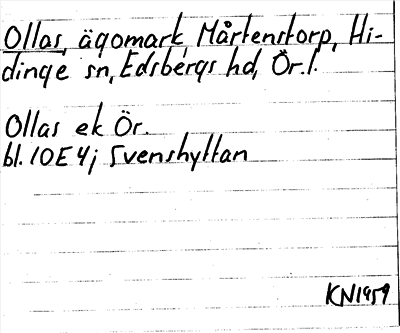 Ollas, ägomark, Mårtenstorp, Hi-
dinge sn, Edsbergs hd, Ör. l.
Ollas ek Ör.
bl. 10E4j Svenshyttan
KN1959